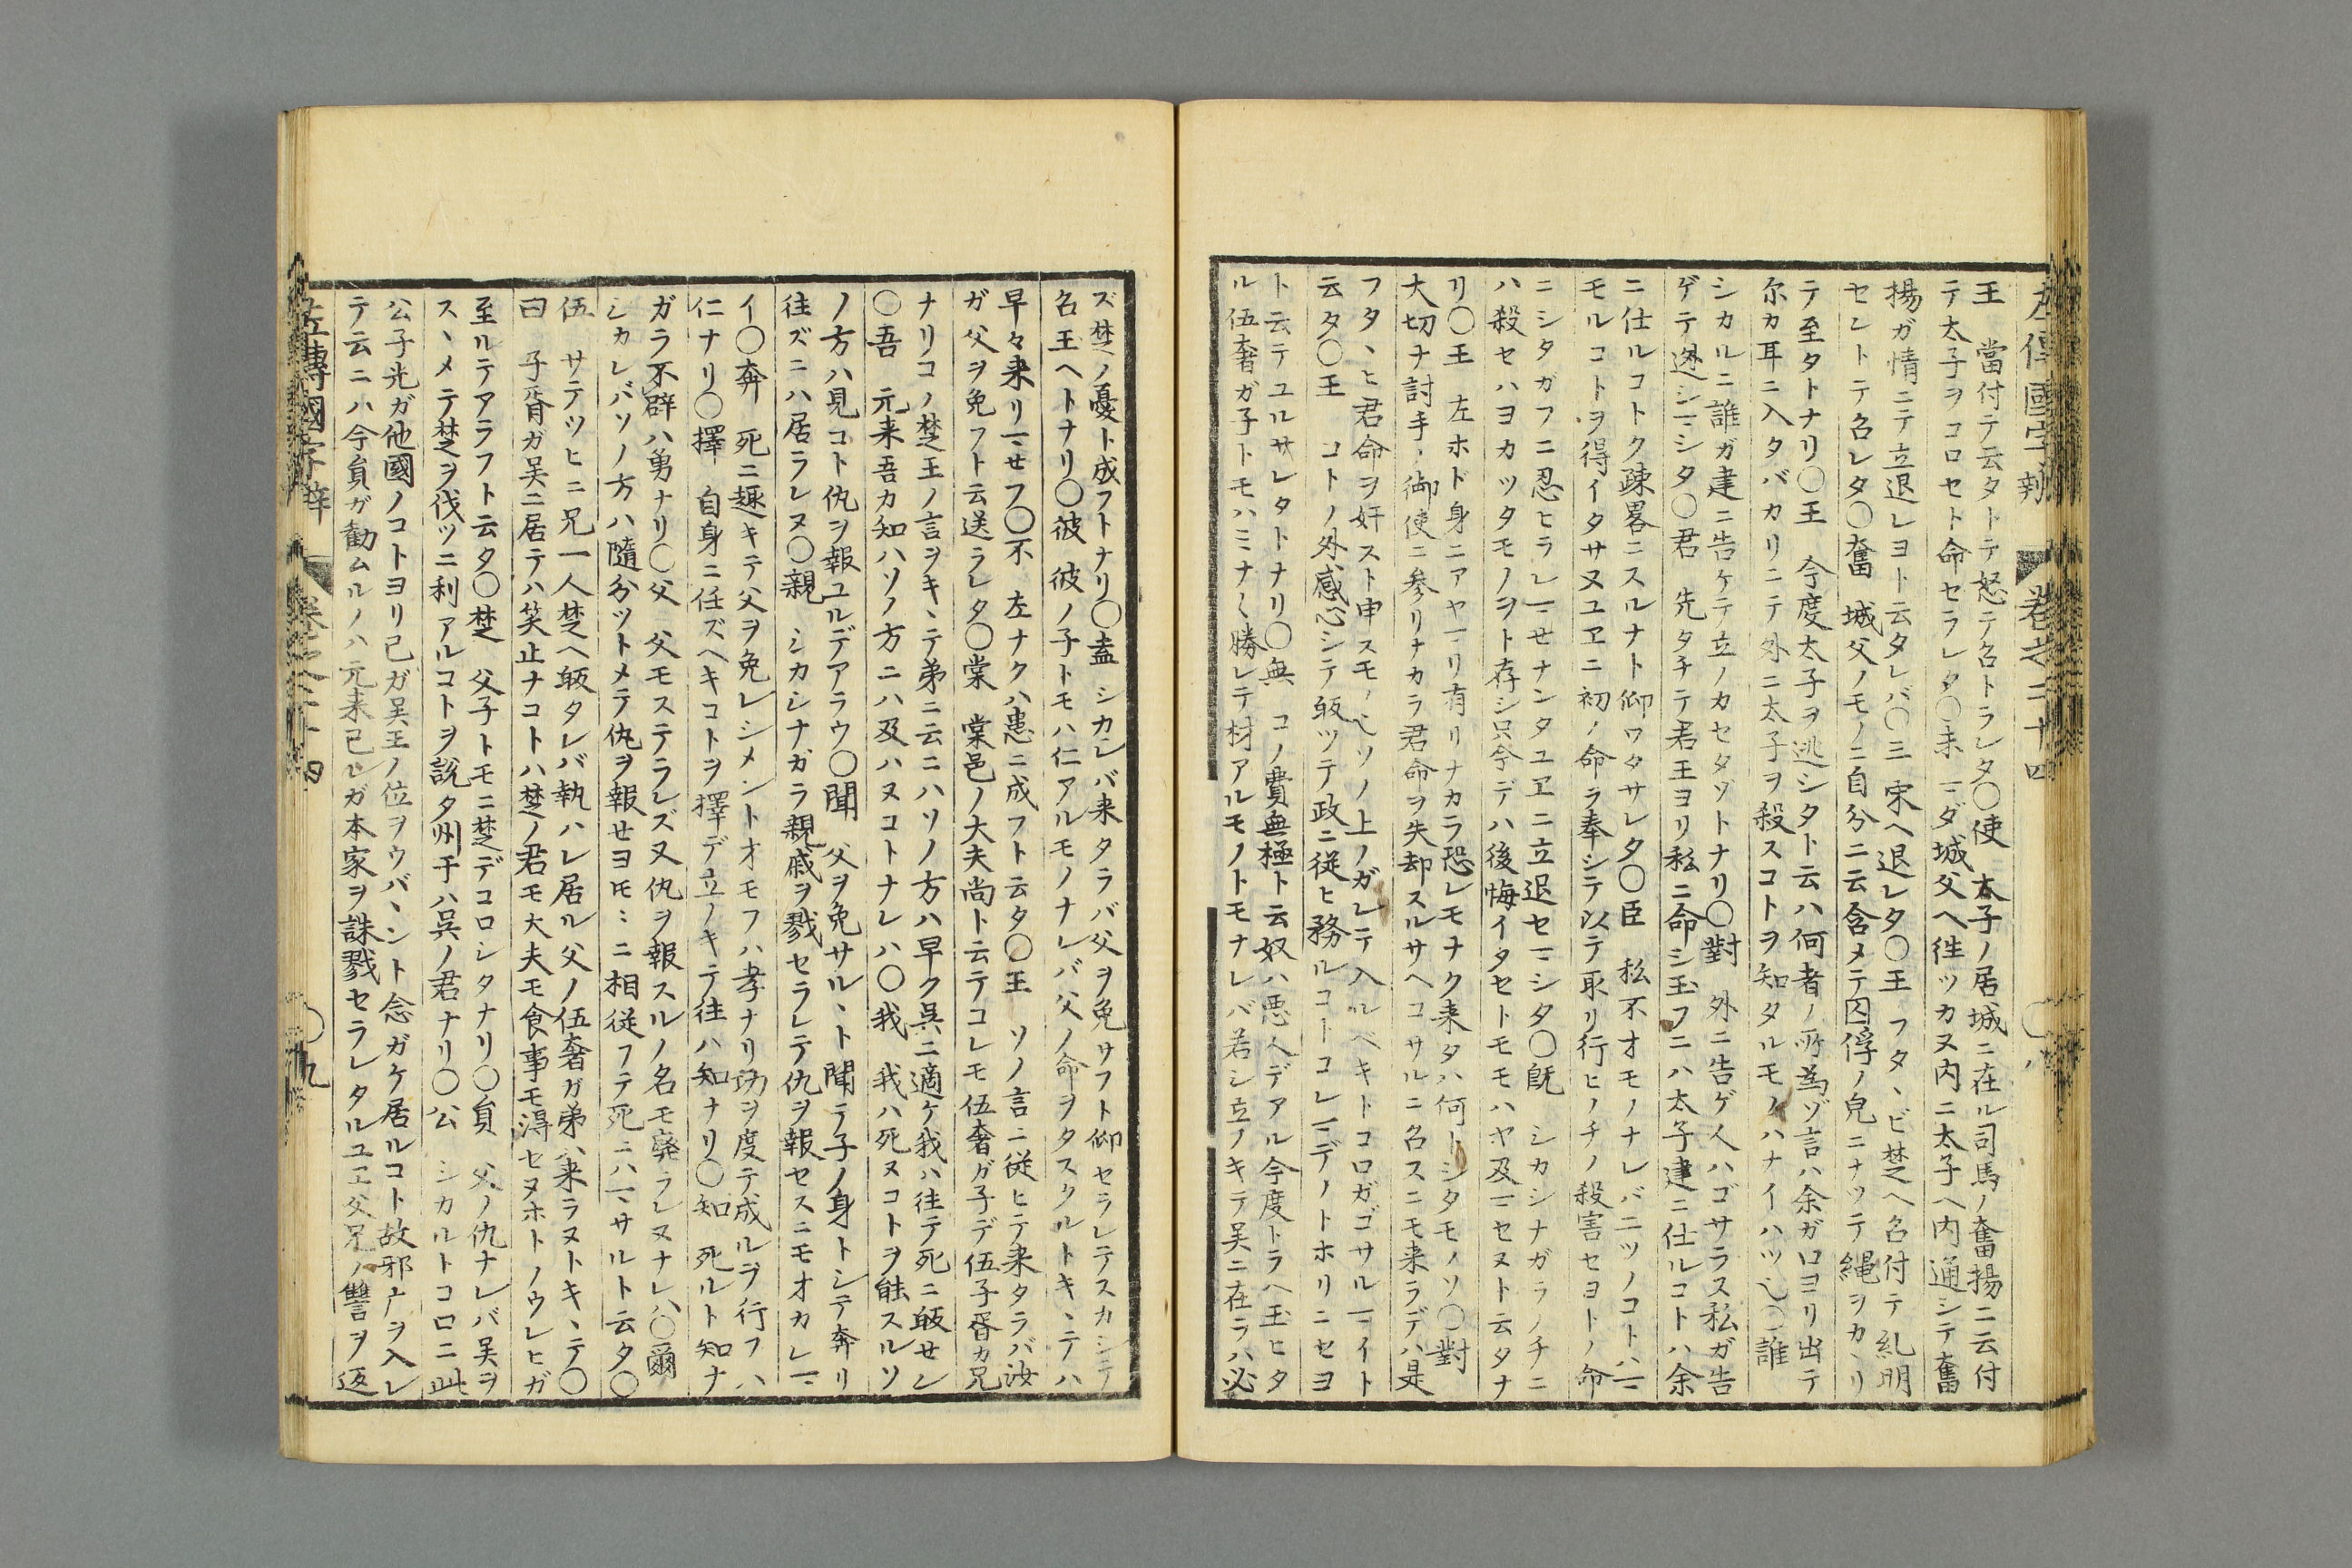 左傳國字辯 卷之二十四 〇八
王 當付テ云タトテ怒テ召トラレタ〇使 太子ノ居城ニ在ル司馬ノ奮揚ニ云付
テ太子ヲコロセト命セラレタ〇未 マダ城父ヘ徃ツカヌ内ニ太子ヘ内通シテ奮
揚ガ情ニテ立退レヨト云タレバ〇三 宋ヘ退レタ〇王 フタヽビ楚ヘ召付テ糺明
セントテ召レタ〇奮 城父ノモノニ自分ニ云含メテ囚俘ノ皃ニナツテ縄ヲカヽリ
テ至タトナリ〇王 今度太子ヲ逃シタト云ハ何者ノ所為ゾ言ハ余ガ口ヨリ出テ
尓カ耳ニ入タバカリニテ外ニ太子ヲ殺スコトヲ知タルモノハナイハツ也〇誰
シカルニ誰ガ建ニ告ケテ立ノカセタゾトナリ〇對 外ニ告ゲ人ハゴサラス私ガ告
ゲテ迯シマシタ〇君 先タチテ君王ヨリ私ニ命シ玉フニハ太子建ニ仕ルコトハ余
ニ仕ルコトク疎畧ニスルナト仰ワタサレタ〇臣 私不才モノナレバニツノコトハマ
モルコトヲ得イタサヌユヱニ初ノ命ラ奉シテ以テ取リ行ヒノチノ殺害セヨトノ命
ニシタガフニ忍ヒラレマせナンタユヱニ立退セマシタ〇既 シカシナガラノチニ
ハ殺セハヨカツタモノヲト存シ只今デハ後悔イタセトモモハヤ及マセヌト云タナ
リ〇王 左ホド身ニアヤマリ有リナカラ恐レモナク来タハ何トシタモノソ〇對
大切ナ討手ノ御使ニ参リナカラ君命ヲ失却スルサヘコサルニ召スニモ来ラデハ是
フタヽヒ君命ヲ奸スト申スモノ也ソノ上ノガレテ入ルベキトコロガゴサルマイト
云タ〇王 コトノ外感心シテ皈ツテ政ニ従ヒ務ルコトコレマデノトホリニセヨ
ト云テユルサレタトナリ〇無 コノ費無極ト云奴ハ悪人デアル今度トラヘ玉ヒタ
ル伍奢ガ子トモハミナ〱勝レテ材アルモノトモナレバ若シ立ノキテ吴ニ在ラハ必
ズ楚ノ憂ト成フトナリ〇盍 シカレバ来タラバ父ヲ免サフト仰セラレテスカシテ
召玉ヘトナリ〇彼 彼ノ子トモハ仁アルモノナレバ父ノ命ヲタスクルトキヽテハ
早々来リマせフ〇不 左ナクハ患ニ成フト云タ〇王 ソノ言ニ従ヒテ来タラバ汝
ガ父ヲ免フト云送ラレタ〇棠 棠邑ノ大夫尚ト云テコレモ伍奢ガ子デ伍子胥カ兄
ナリコノ楚王ノ言ヲキヽテ弟ニ云ニハソノ方ハ早ク呉ニ適ケ我ハ往テ死ニ皈せン
〇吾 元来吾カ知ハソノ方ニハ及ハヌコトナレハ〇我 我ハ死ヌコトヲ能スルソ
ノ方ハ見コト仇ヲ報ユルデアラウ〇聞 父ヲ免サルヽト聞テ子ノ身トシテ奔リ
往ズニハ居ラレヌ〇親 シカシナガラ親戚ヲ戮セラレテ仇ヲ報セスニモオカレマ
イ〇奔 死ニ趣キテ父ヲ免レシメントオモフハ孝ナリ功ヲ度テ成ルヲ行フハ
仁ナリ〇擇 自身ニ任ズヘキコトヲ擇デ立ノキテ往ハ知ナリ〇知 死ルト知ナ
ガラ不辟ハ勇ナリ〇父 父モステラレズ又仇ヲ報スルノ名モ廃ラレヌナレハ〇爾
シカレバソノ方ハ隨分ツトメテ仇ヲ報せヨモミニ相従フテ死ニハマサルト云タ〇
伍 サテツヒニ兄一人楚ヘ皈タレバ執ハレ居ル父ノ伍奢ガ弟ハ来ラヌトキヽテ〇
曰 子胥ガ吴ニ居テハ笑止ナコトハ楚ノ君モ大夫モ食事モ淂セヌホトノウレヒガ
至ルテアラフト云タ〇楚 父子トモニ楚デコロシタナリ〇員 父ノ仇ナレバ吴ヲ
スヽメテ楚ヲ伐ツニ利アルコトヲ説タ州于ハ呉ノ君ナリ〇公 シカルトコロニ此
公子光ガ他國ノコトヨリ己ガ吴王ノ位ヲウバヽント念ガケ居ルコト故邪广ヲ入レ
テ云ニハ今員ガ勧ムルノハ元来己レガ本家ヲ誅戮セラレタルユヱ父兄ノ讐ヲ返
左傳國字辯 卷之二十四 〇九